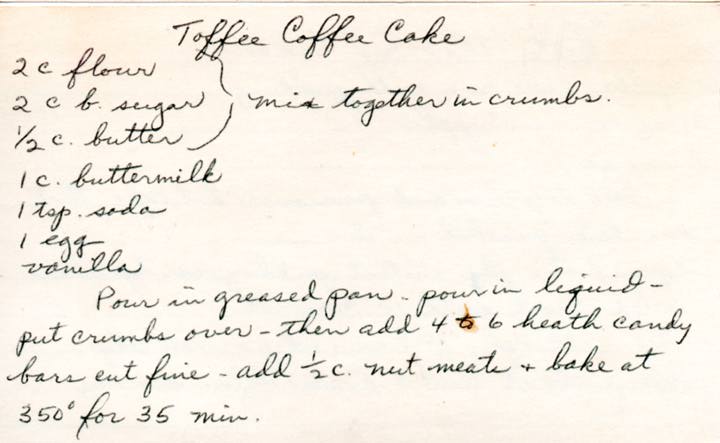 Toffee Coffee Cake
2 c flour
2 c b. sugar } mix together in crumbs.
1/2 c. butter
1 c. buttermilk
1 tsp. soda
1 egg
vanilla
Pour in greased pan - pour in liquid -
put crumbs over - then add 4 to 6 heath candy
bars cut fine - add 1/2 c. nut meats + bake at
350° for 35 min.